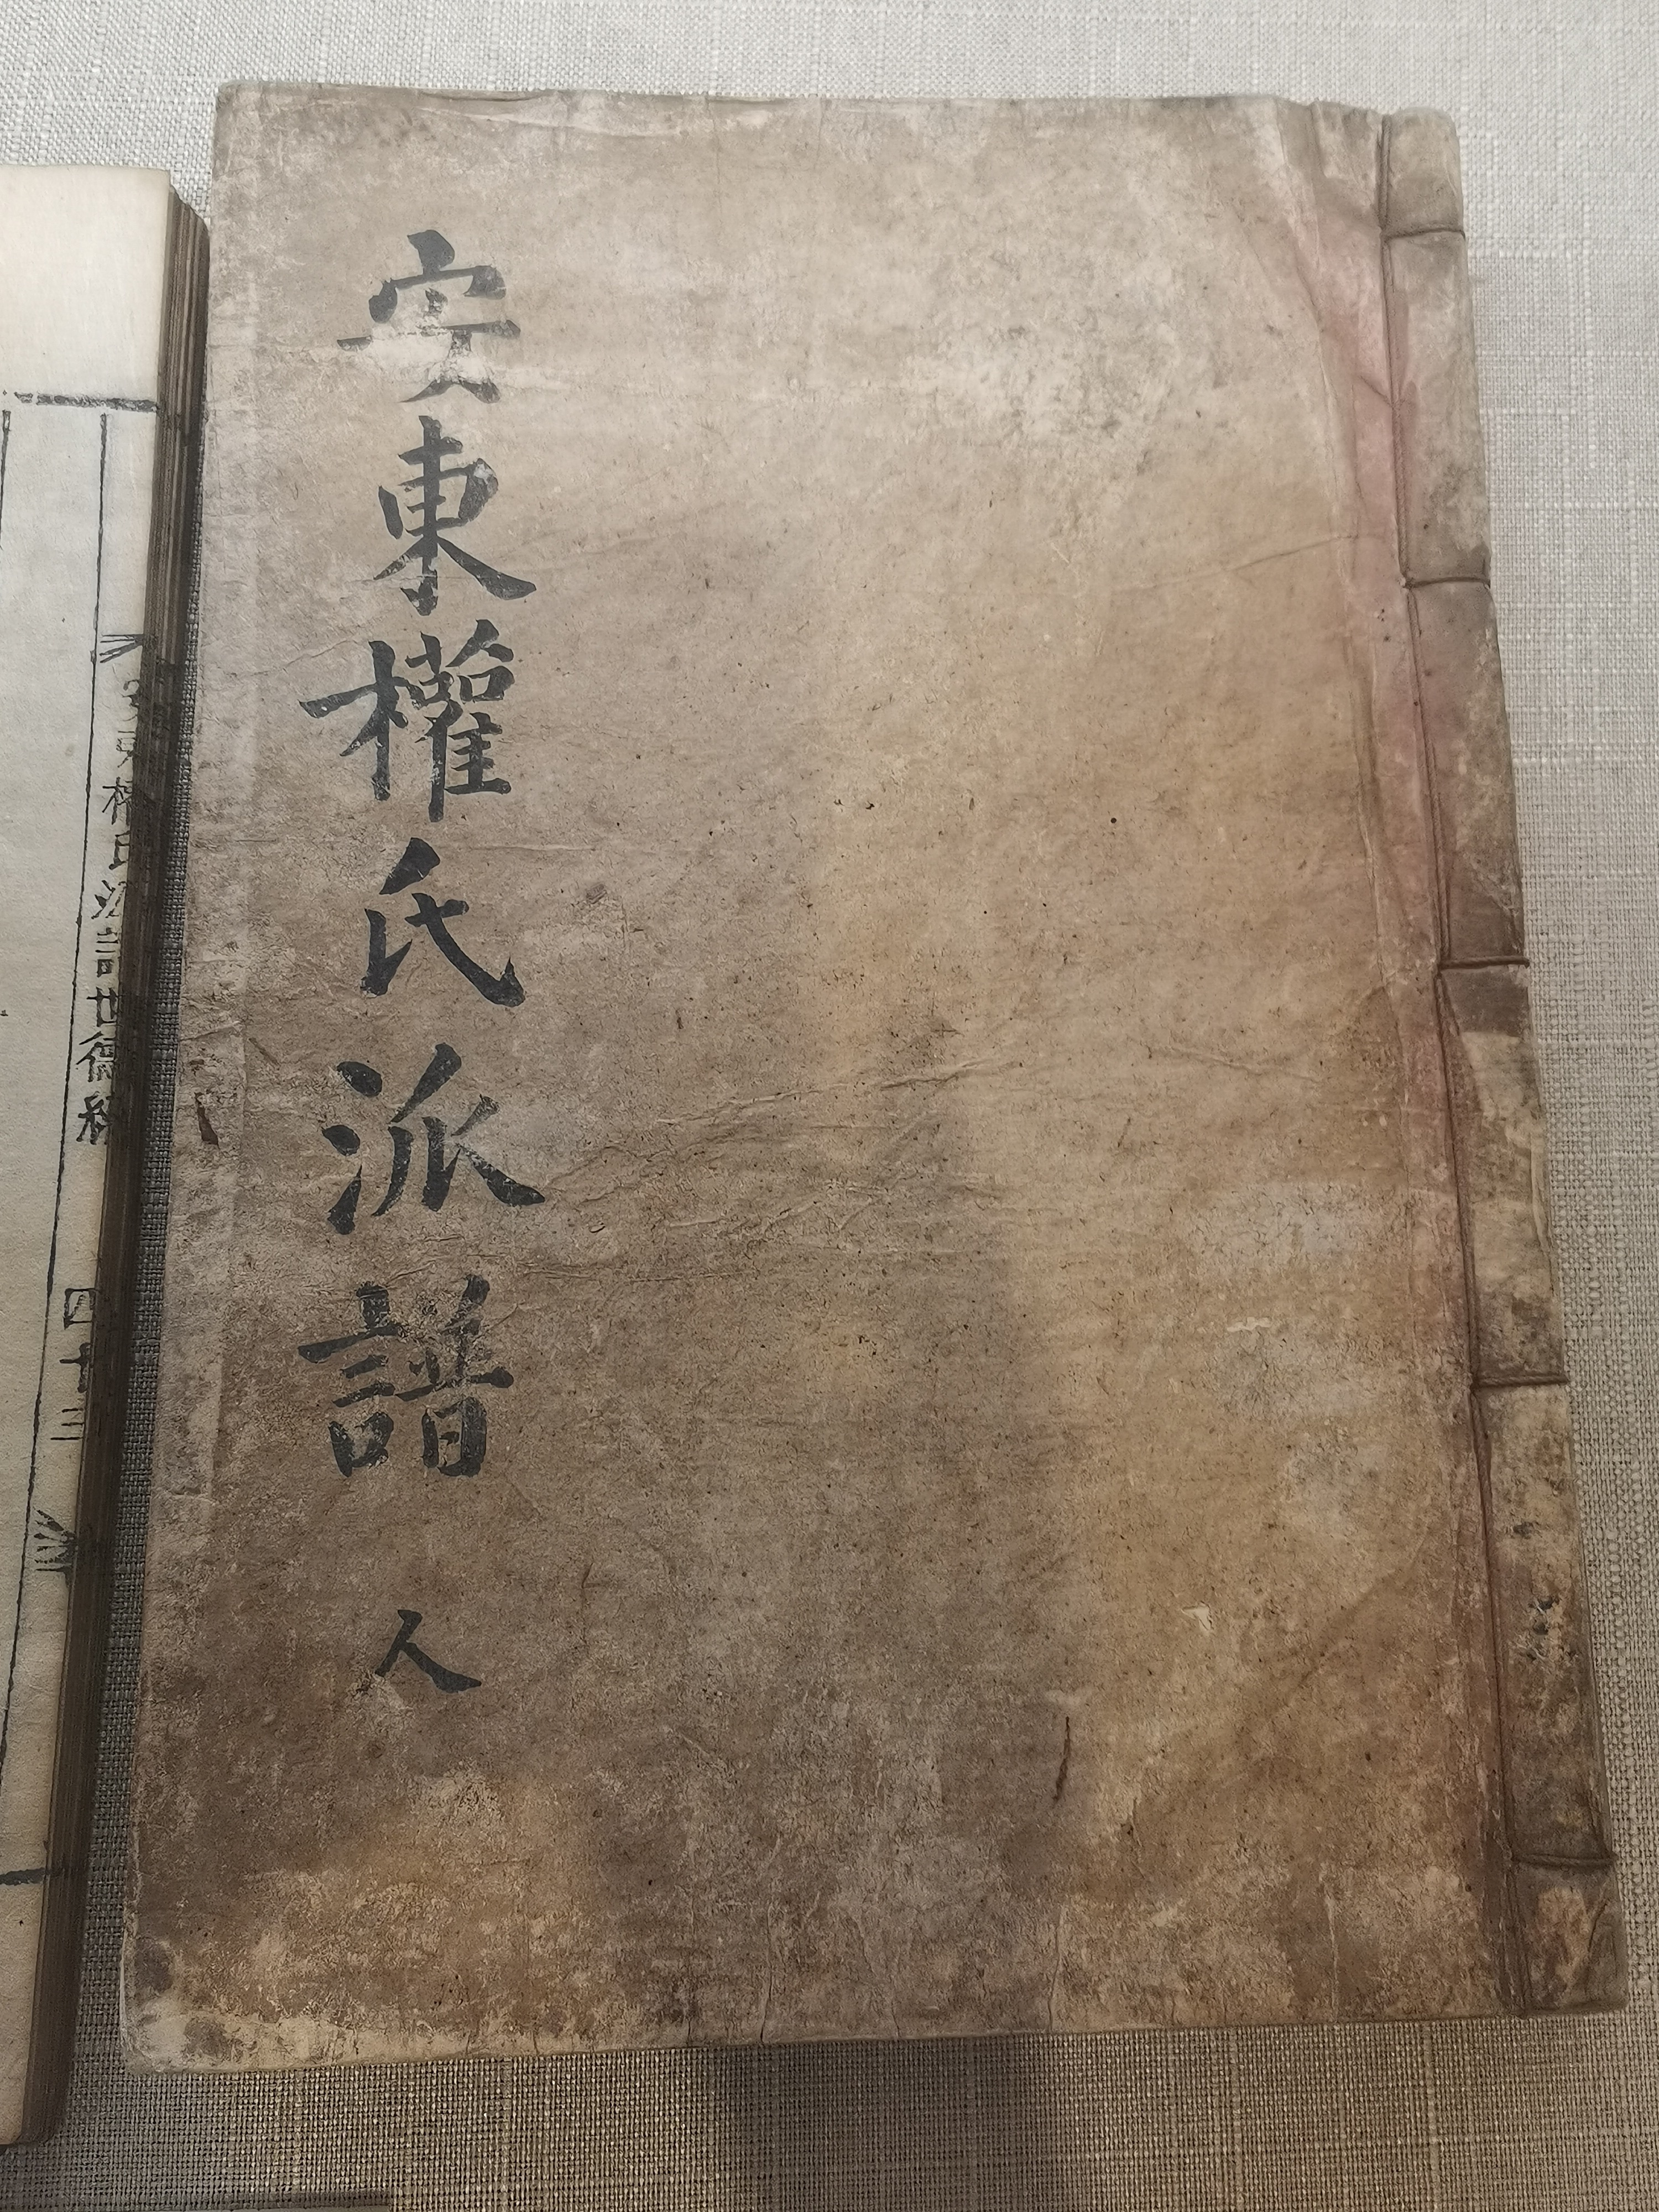 安東權氏派譜 人
安東權氏派譜世德編 四十三